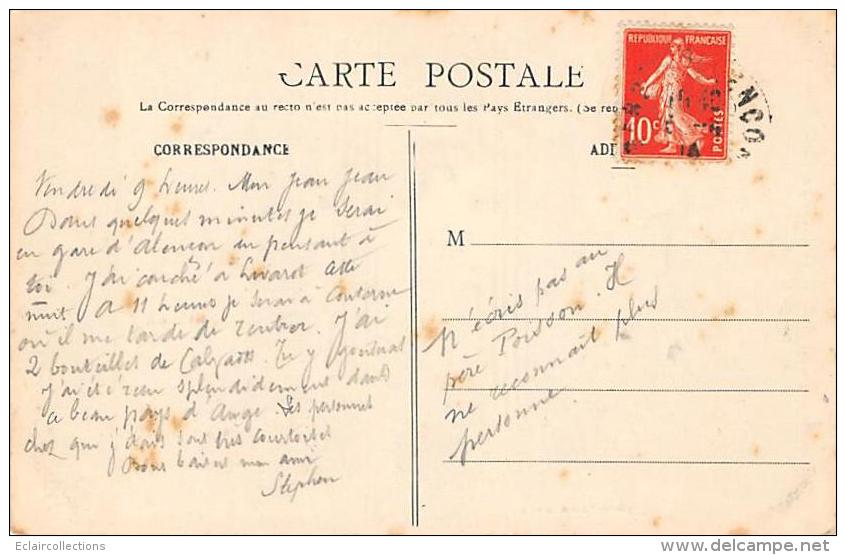 CARTE POSTALE
La Correspondance au recto n'est pas acceptée par tous les Pays Étrangers. (Se re
CORRESPONDANCE
AD
REPUBLIQUE FRANÇAISE
10c
POSTES
ENCO
Vendredi 9 heures. Mon Jean Jean
Dans quelques minutes je serai
en gare d'Alençon en pensant à
toi. J'ai couché à Livarot cette
nuit. A 11 heures je serai à Couterne
où il me tarde de rentrer. J'ai
2 bouteilles de Calvados. Tu y gouteras
J'ai été reçu splendidement dans
ce beau pays d'Auge. Les personnes
chez qui j'étais sont très courtoises
Bons baisers mon ami
Stephen
M
N'écris pas au
père Poisson. Il
ne reconnait plus
personne
Eclaircollections
www.delcampe.net